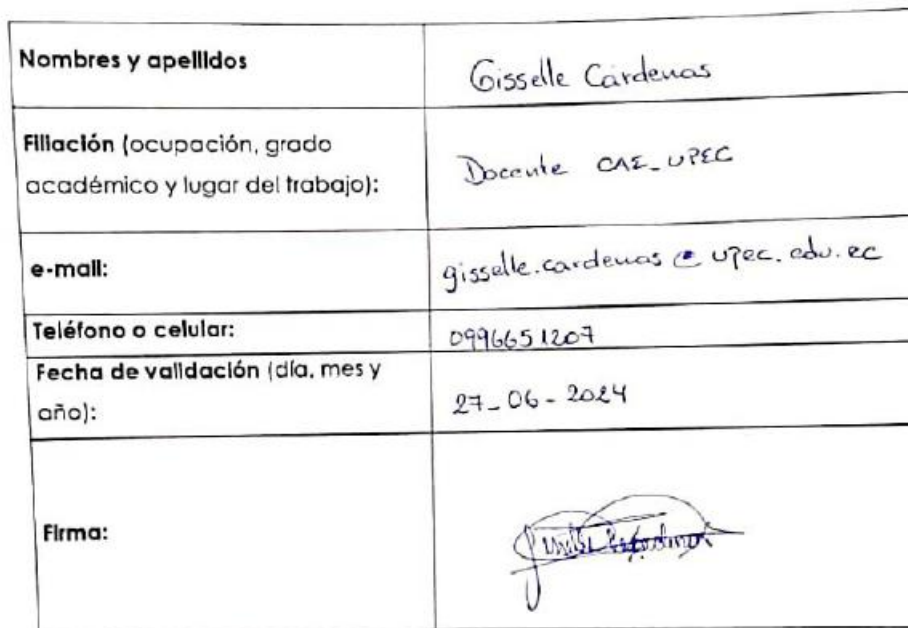 Nombres y apellidos
Gisselle Cárdenas
Filiación (ocupación, grado
académico y lugar del trabajo):
Docente CAE_UPEC
e-mail:
gisselle.cardenas@upec.edu.ec
Teléfono o celular:
0996651207
Fecha de validación (día, mes y
año):
27_06-2024
Firma: